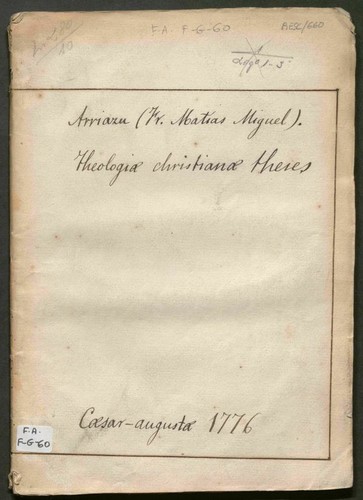 F.A. F-G-60
BESC/660
Arriazu (Fr. Matías Miguel).
Theologiæ christianæ theses
Cæsar-augustæ 1776
F.A.
F-G-60